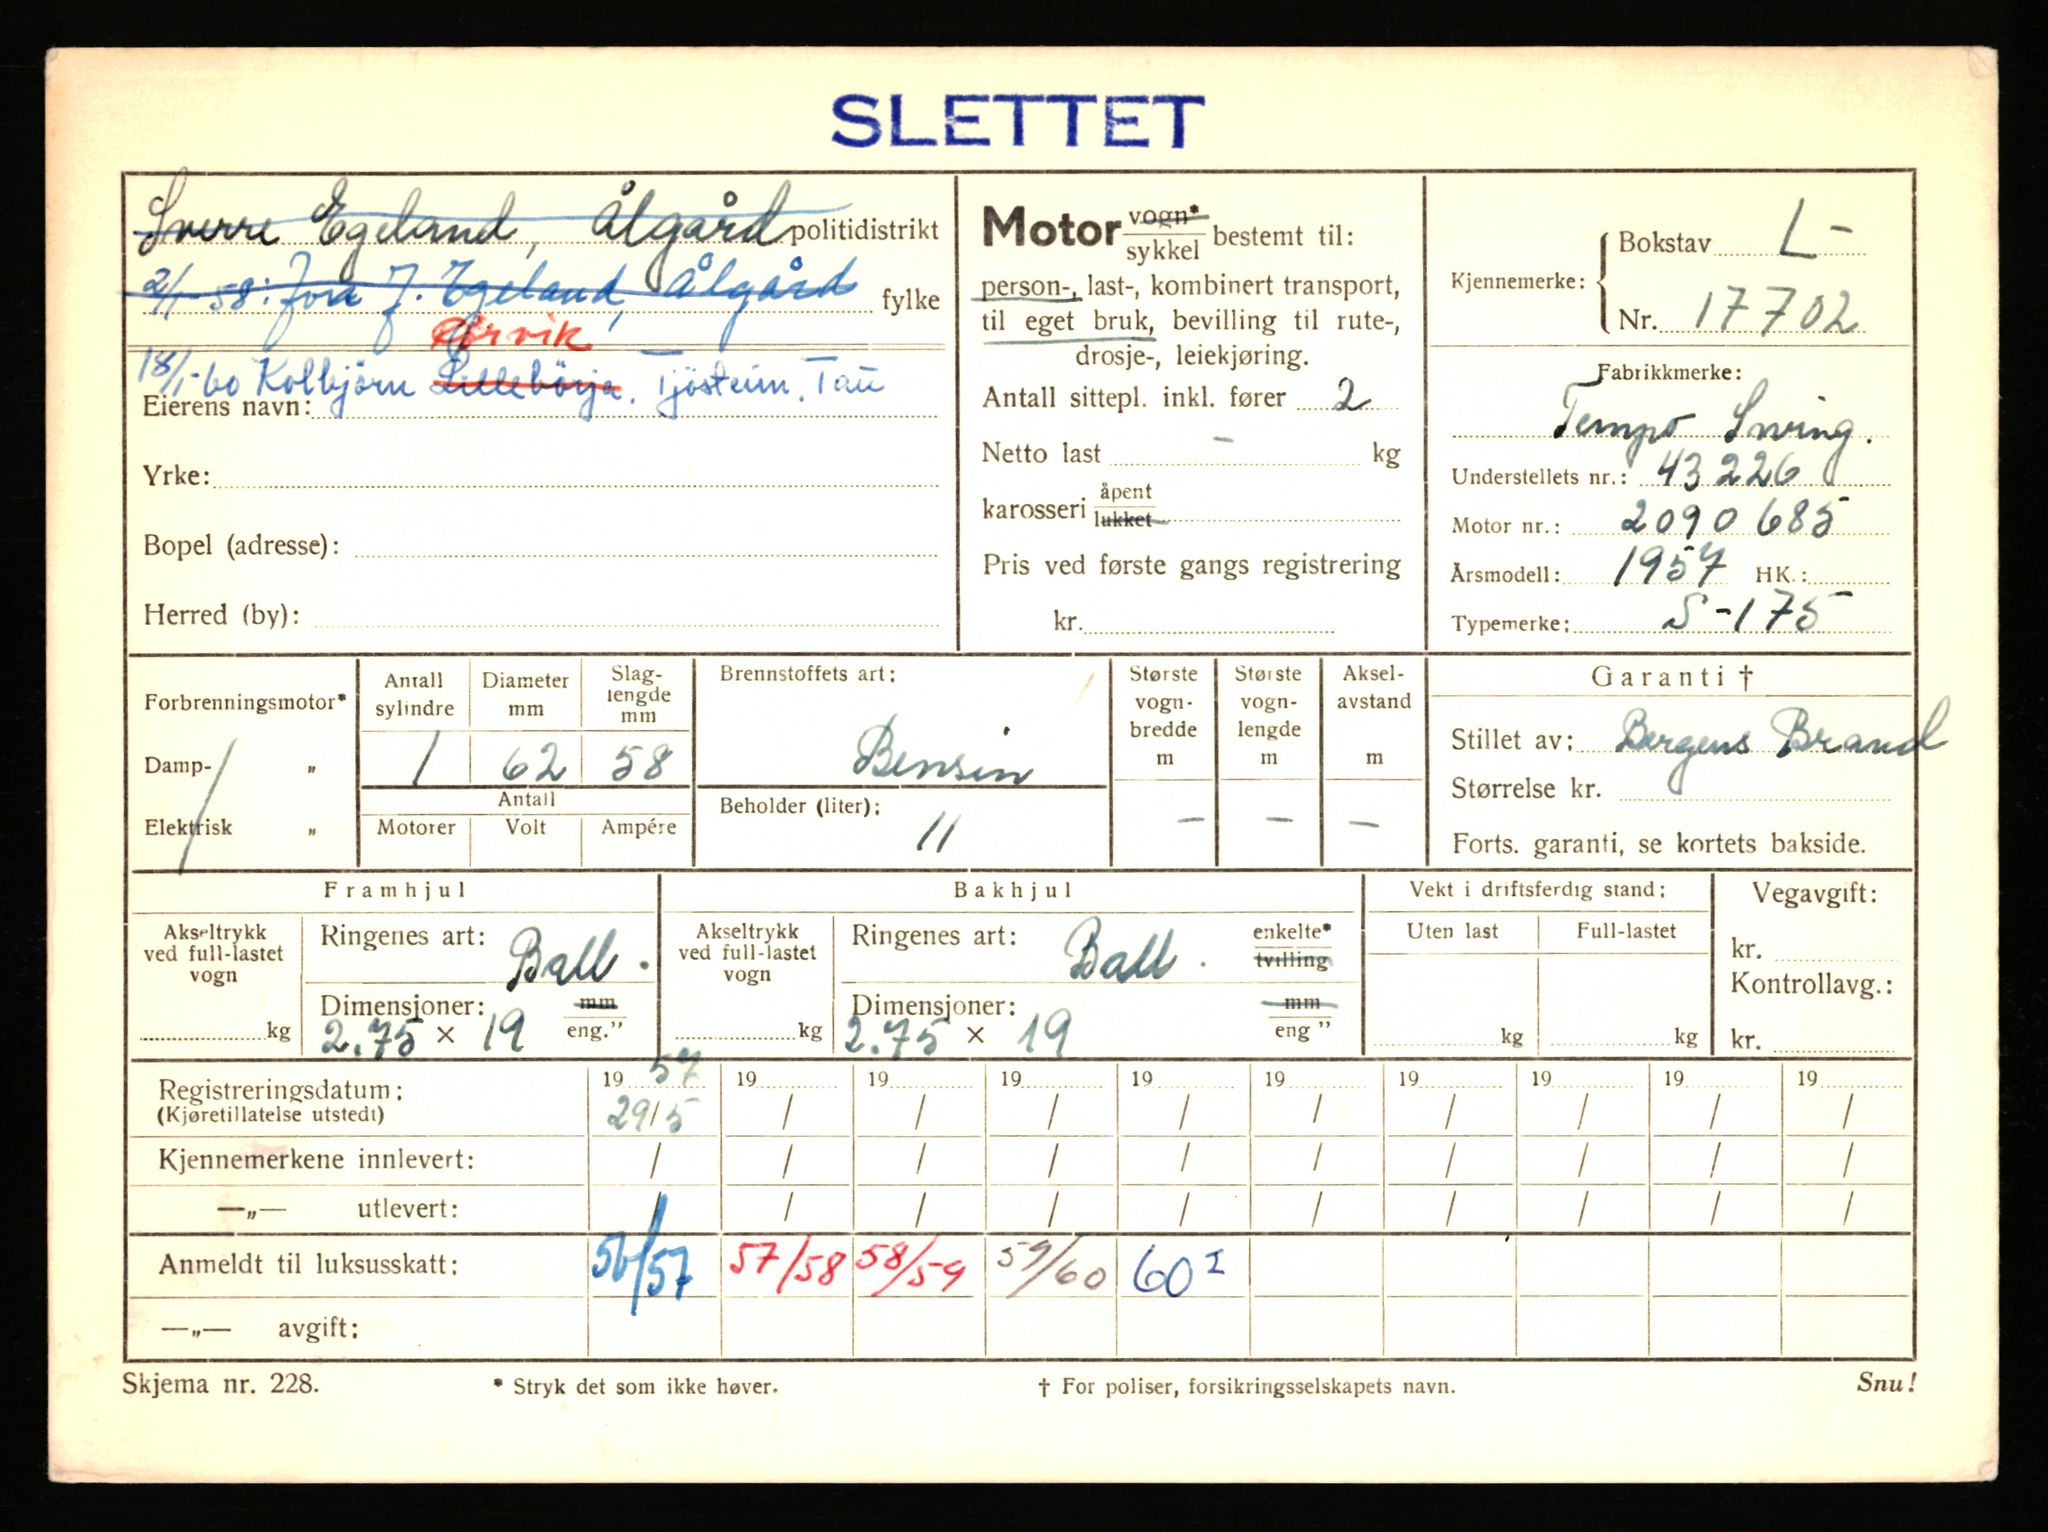 SLETTET
Sverre Egeland, Ålgård politidistrikt
2/1-58: J. Egeland, Ålgård fylke
18/1-60 Kolbjörn Lillebörja. Tjösteim. Tau
Eierens navn:
Yrke:
Bopel (adresse):
Herred (by):
Motor vogn* / sykkel bestemt til:
person-, last-, kombinert transport,
til eget bruk, bevilling til rute-,
drosje-, leiekjøring.
Antall sittepl. inkl. fører 2
Netto last – kg
karosseri åpent / lukket
Pris ved første gangs registrering
kr.
Kjennemerke: Bokstav L-
Nr. 17702
Fabrikkmerke:
Tempo Swing.
Understellets nr.: 43226
Motor nr.: 2090685
Årsmodell: 1957 HK.:
Typemerke: S-175
Forbrenningsmotor*
Damp- „
Elektrisk „
Antall sylindre Diameter mm Slag-lengde mm
1 62 58
Antall
Motorer Volt Ampére
Brennstoffets art:
Bensin
Beholder (liter):
11
Største vogn-bredde m Største vogn-lengde m Aksel-avstand m
– – –
Garanti †
Stillet av: Bergens Brand
Størrelse kr.
Forts. garanti, se kortets bakside.
Framhjul
Akseltrykk ved full-lastet vogn
kg
Ringenes art: Ball.
Dimensjoner: mm
2.75 × 19 eng.”
Bakhjul
Akseltrykk ved full-lastet vogn
kg
Ringenes art: Ball. enkelte* / tvilling
Dimensjoner: mm
2.75 × 19 eng ”
Vekt i driftsferdig stand:
Uten last Full-lastet
kg kg
Vegavgift:
kr.
Kontrollavg.:
kr.
Registreringsdatum: 19 57 19 19 19 19 19 19 19 19 19
(Kjøretillatelse utstedt) 29/5 / / / / / / / / /
Kjennemerkene innlevert: / / / / / / / / / /
—„— utlevert: / / / / / / / / / /
Anmeldt til luksusskatt: 56/57 57/58 58/59 59/60 60 I
—„— avgift:
Skjema nr. 228. * Stryk det som ikke høver. † For poliser, forsikringsselskapets navn. Snu!